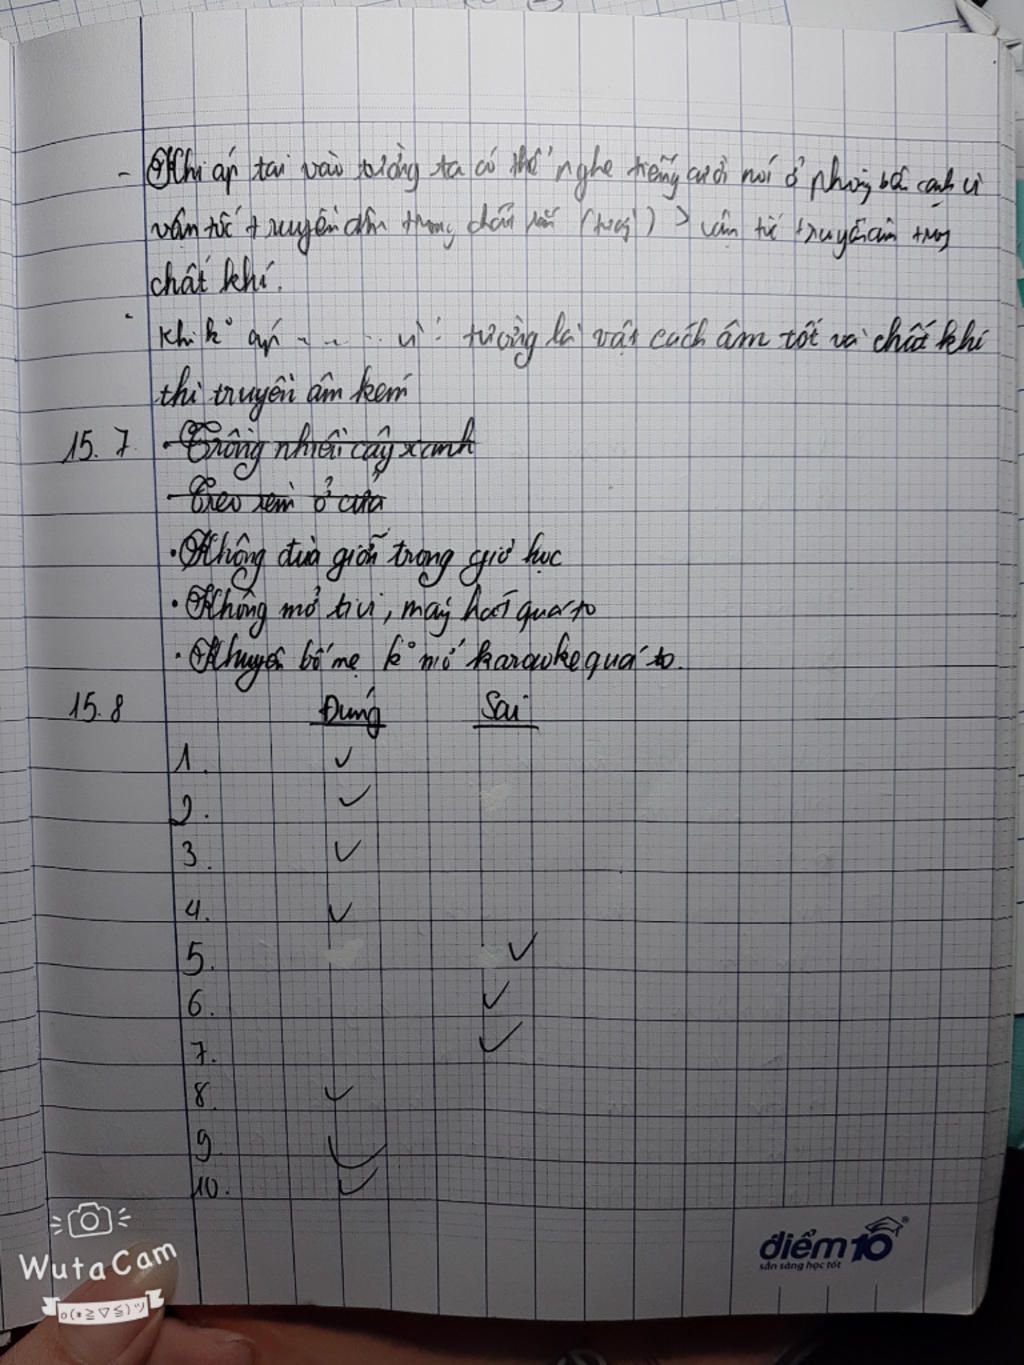 - Khi áp tai vào tường ta có thể nghe tiếng cười nói ở phòng bên cạnh vì
vận tốc truyền âm trong chất rắn (tường) > vận tốc truyền âm trong
chất khí.
Khi kº áp ..... vì: tường là vật cách âm tốt và chất khí
thì truyền âm kém
15.7 • Trồng nhiều cây xanh
• Treo rèm ở cửa
• Không đùa giỡn trong giờ học
• Không mở tivi, máy hát quá to
• Khuyên bố mẹ kº mở karaoke quá to.
15.8 Đúng Sai
1. ✓
2. ✓
3. ✓
4. ✓
5. ✓
6. ✓
7. ✓
8. ✓
9. ✓
10. ✓
WutaCam
o(*≧▽≦)ツ
điểm10
sẵn sàng học tốt